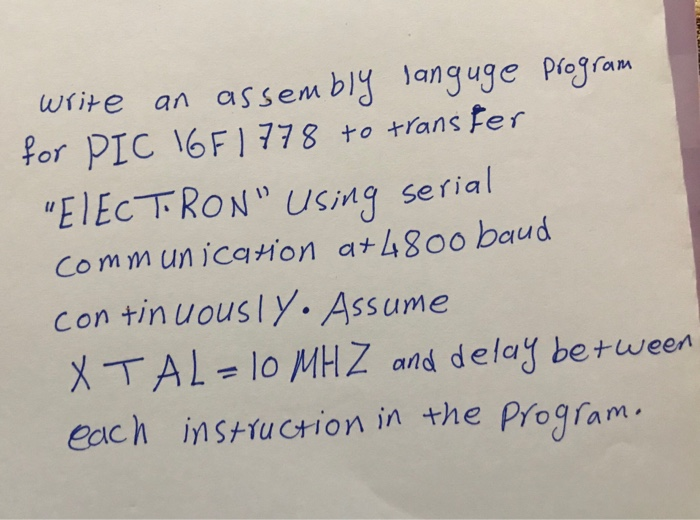 write an assembly languge program
for PIC 16F1778 to transfer
"ElECT.RON" Using serial
communication at 4800 baud
continuously. Assume
XTAL = 10 MHZ and delay between
each instruction in the program.